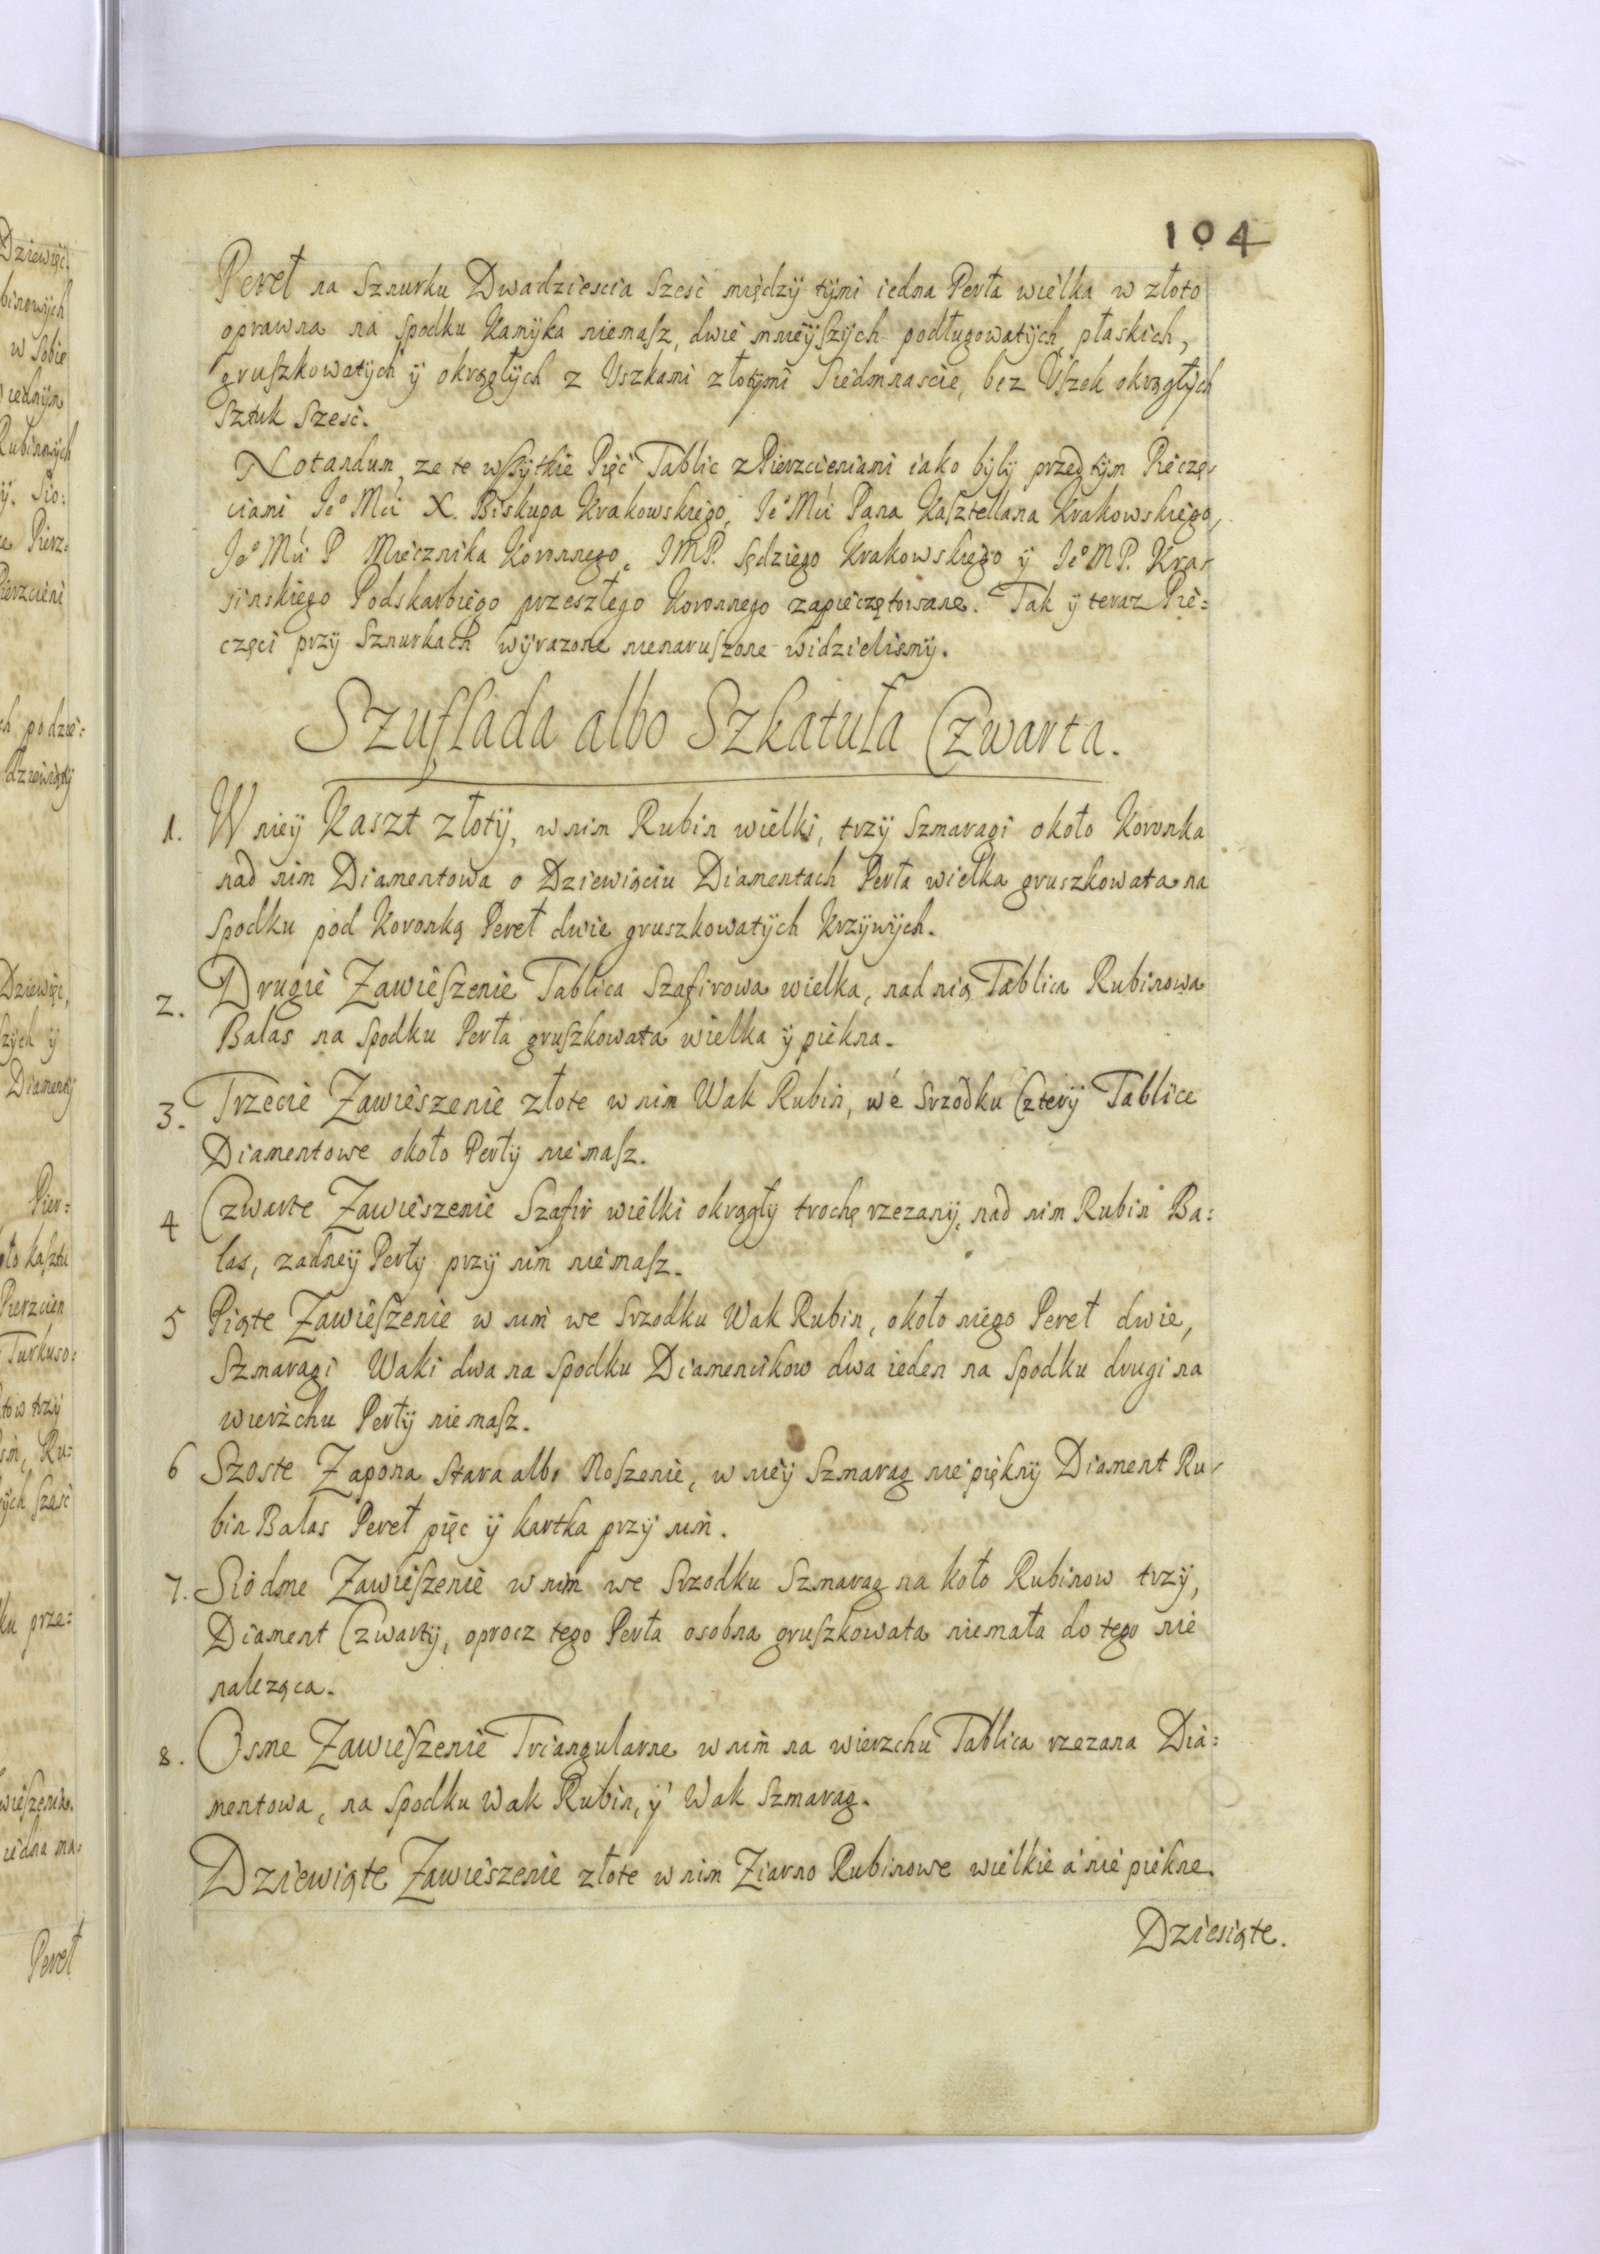 104
Pereł na Sznurku Dwadziescia Szesc między tymi iedna Perła wielka w złoto
oprawna na spodku Kamyka niemasz, dwie mnieyszych podługowatych, płaskich,
gruszkowatych y okrągłych z Uszkami złotymi Siedmnascie, bez Uszek okrągłych
Sztuk Szesc.
Notandum, ze te wszytkie Pięć Tablic z Pierzcieniami iako były przed tym Pieczę-
ciami Je° Mći X. Biskupa Krakowskiego, Je° Mći Pana Kasztellana Krakowskiego,
Je° Mći P Miecznika Koronnego, JMP. Sędziego Krakowskiego y Je° MP. Kra-
sinskiego Podskarbiego przeszłego Koronnego zapieczętowane. Tak y teraz Pie=
częci przy Sznurkach wyrazone nienaruszone widzielismy.
Szuflada albo Szkatuła Czwarta.
1. W niey Kaszt złoty, w nim Rubin wielki, trzy Szmaragi około Koronka
nad nim Diamentowa o Dziewiąciu Diamentach Perła wielka gruszkowata na
Spodku pod Koronką Pereł dwie gruszkowatych Krzywych.
2. Drugie Zawieszenie Tablica Szafirowa wielka, nad nią Tablica Rubinowa
Balas na Spodku Perła gruszkowata wielka y piękna.
3. Trzecie Zawieszenie złote w nim Wak Rubin, we Srzodku Cztery Tablice
Diamentowe około Perły niemasz.
4 Czwarte Zawieszenie Szafir wielki okrągły trochę rzezany, nad nim Rubin Ba=
las, zadney Perły przy nim niemasz.
5 Piąte Zawieszenie w nim we Srzodku Wak Rubin, około niego Pereł dwie,
Szmaragi Waki dwa na Spodku Diamencikow dwa ieden na Spodku drugi na
wierzchu Perły niemasz.
6 Szoste Zapona Stara albo Noszenie, w niey Szmarag niepiękny Diament Ru-
bin Balas Pereł pięc y kartka przy nim.
7. Siodme Zawieszenie w nim we Srzodku Szmarag na koło Rubinow trzy,
Diament Czwarty, oprocz tego Perła osobna gruszkowata niemała do tego nie
naleząca.
8. Osme Zawieszenie Triangularne w nim na wierzchu Tablica rzezana Dia=
mentowa, na Spodku Wak Rubin, y Wak Szmarag.
Dziewiąte Zawieszenie złote w nim Ziarno Rubinowe wielkie a nie piękne.
Dziesiąte.